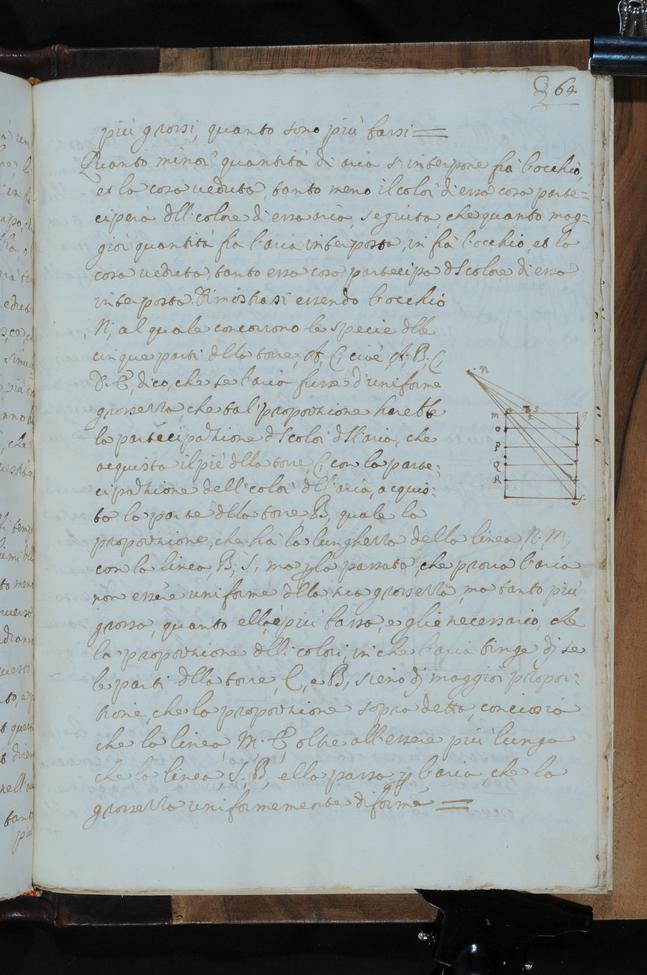 64
più grossi, quanto sono più bassi =
Quanto minor quantità di aria s'interpone frà l'occhio,
et la cosa ueduta, tanto meno il color di essa cosa parte=
ciperà dll colore di essa aria, seguita che quanto mag=
gior quantità fia l'aria interposta, in frà l'occhio, et la
cosa ueduta, tanto essa cosa partecipa dl colore di essa
interposta. Dimostrasi essendo l'occhio
N, al quale concorrono le specie dlle
cinque parti dlla torre, A, C, cioè A, B, C
D. E, dico, che se l'aria fusse d'uniforme
grossezza che tal' proportione harebbe
la partecipatione dl color dll'aria, che
acquista il piè dlla torre, C, con la parte=
cipatione dell'color dll'aria, acquis=
ta la parte dlla torre B, quale la
proportione, che hà la lunghezza della linea N. M,
con la linea, B, S, ma p la passata, che proua l'aria
non essere uniforme dlla sua grossezza, ma tanto più
grossa, quanto ella è più bassa, e glie necessario, che
la proportione dlli colori, in che l'aria tinge di se
le parti dlla torre, C, e B, sieno di maggior propor=
tione, che la proportione sopra detta, conciosia
che la linea, M. E oltre all'essere più lunga
che la linea, S, B, ella passa p l'aria, che la
grossezza uniformemente diforme =
n
m
o
p
q
R